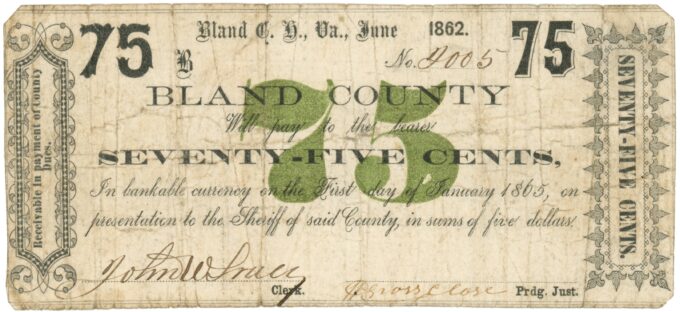 75 Bland C. H., Va., June 1862. 75
B No. 4005
75
BLAND COUNTY
Will pay to the bearer
SEVENTY-FIVE CENTS,
In bankable currency on the First day of January 1865, on
presentation to the Sheriff of said County, in sums of five dollars.
John W
Clerk. Prdg. Just.
Receivable in payment of County
Dues.
SEVENTY-FIVE CENTS.